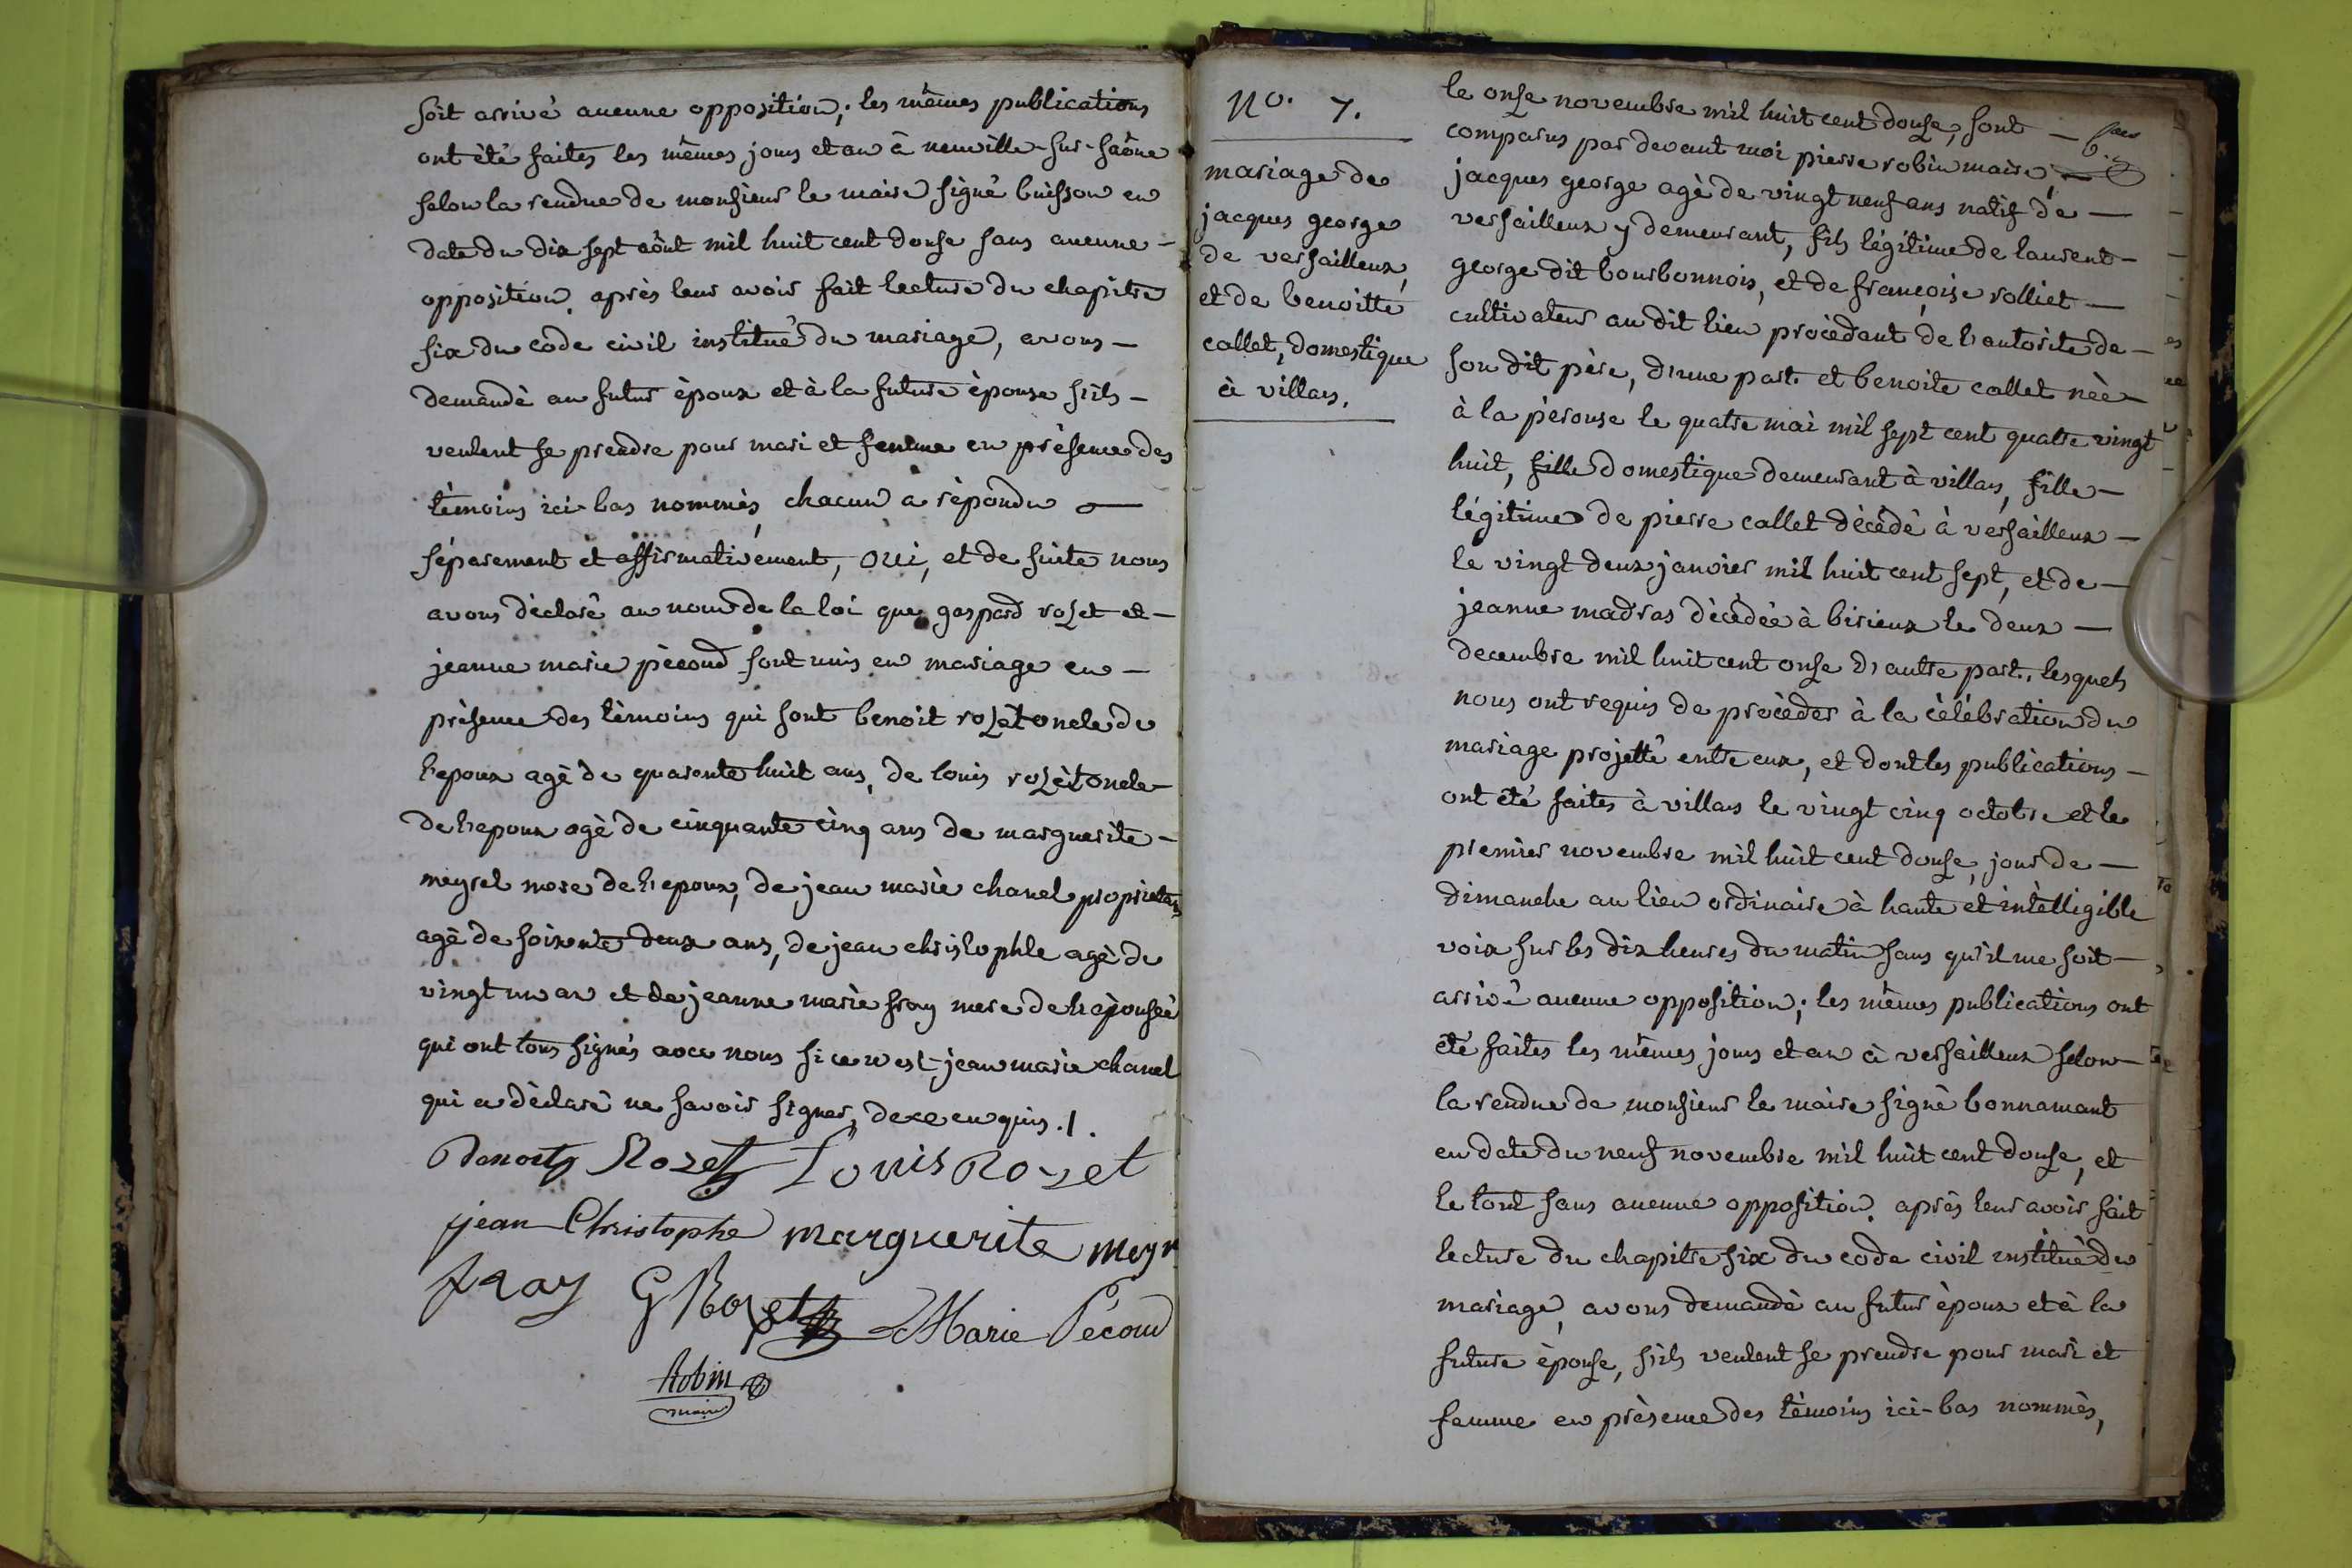 soit arrivé aucune opposition; les mêmes publications
ont été faites les mêmes jours et an à neuville-sur-saône
selon la rendue de monsieur le maire signé buisson en
date du dix sept aôut mil huit cent douse sans aucune -
opposition. après leur avoir fait lecture du chapitre
six du code civil institué du mariage, avons -
demandé au futur époux et à la future épouse s'ils -
veulent se prendre pour mari et femme en présence des
témoins ici-bas nommés, chacun a répondu —
séparement et affirmativement, oui, et de suite nous
avons déclaré au nom de la loi que gaspard rozet et -
jeanne marie pécoud sont unis en mariage en -
présence des témoins qui sont benoit rozet oncle de
l'epoux agé de quarente huit ans, de louis rozèt oncle -
de l'epoux agé de cinquante cinq ans de marguerite -
meyrel mere de l'epoux, de jean marie chanel proprietair
agé de soixente deux ans, de jean christophle agé de
vingt un an et de jeanne marie fray mere de l'épouseé
qui ont tous signés avec nous si ce n'est jean marie chanel
qui a déclaré ne savoir signer, de ce enquis ./.
Benoit Rozet Louis Rozet
jean Christophe marguerite meyr
fray G Rozet Marie Pécoud
Robin
maire
No. 7.
mariage de
jacques george
de versailleux,
et de benoitte
callet, domestique
à villars.
le onse novembre mil huit cent douse, sont —
comparus par devant moi pierre robin maire, —
jacques george agé de vingt neuf ans natif de —
versailleux y demeurant, fils légitime de laurent -
george dit bourbonnois, et de françoise rolliet —
cultivateur au dit lieu procédant de l'autorité de -
son dit père, d'une part. et benoite callet née -
à la pérouse le quatre mai mil sept cent quatre vingt
huit, fille domestique demeurant à villars, fille -
légitime de pierre callet décédé à versailleux -
le vingt deux janvier mil huit cent sept, et de -
jeanne madras décédée à birieux le deux —
decembre mil huit cent onse d'autre part., lesquels
nous ont requis de procéder à la célébration du
mariage projetté entre eux, et dont les publications -
ont été faites à villars le vingt cinq octobre et le
premier novembre mil huit cent douse, jour de —
dimanche au lieu ordinaire à haute et intelligible
voix sur les dix heures du matin sans qu'il me soit -
arrivé aucune opposition; les mêmes publications ont
été faites les mêmes jours et an à versailleux selon -
la rendue de monsieur le maire signé bonnamant
en date du neuf novembre mil huit cent douse, et
le tout sans aucune opposition. après leur avoir fait
lecture du chapitre six du code civil institué du
mariage, avons demandé au futur époux et à la
future épouse, s'ils veulent se prendre pour mari et
femme en présence des témoins ici-bas nommés,